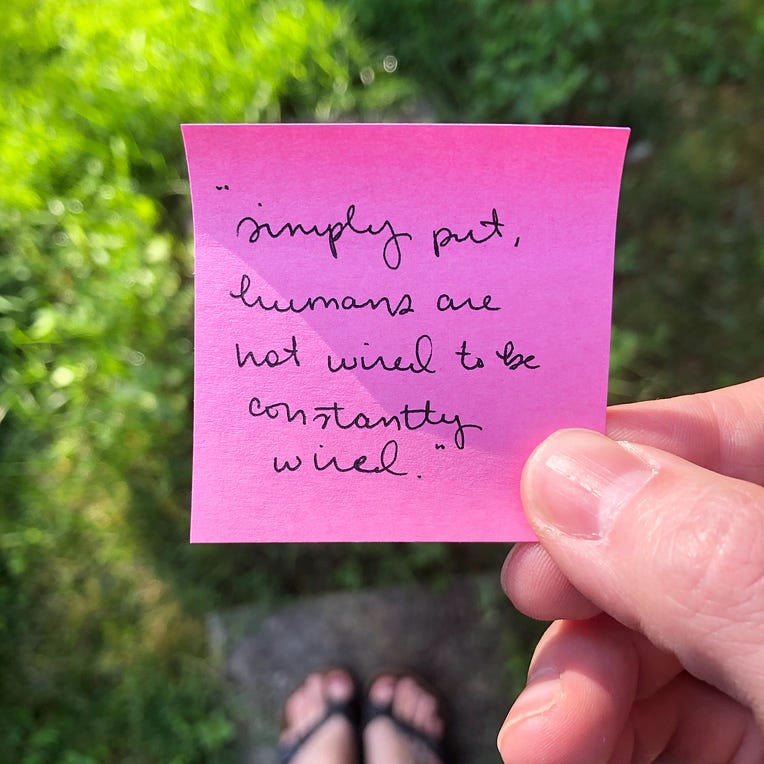 "simply put,
humans are
not wired to be
constantly
wired."